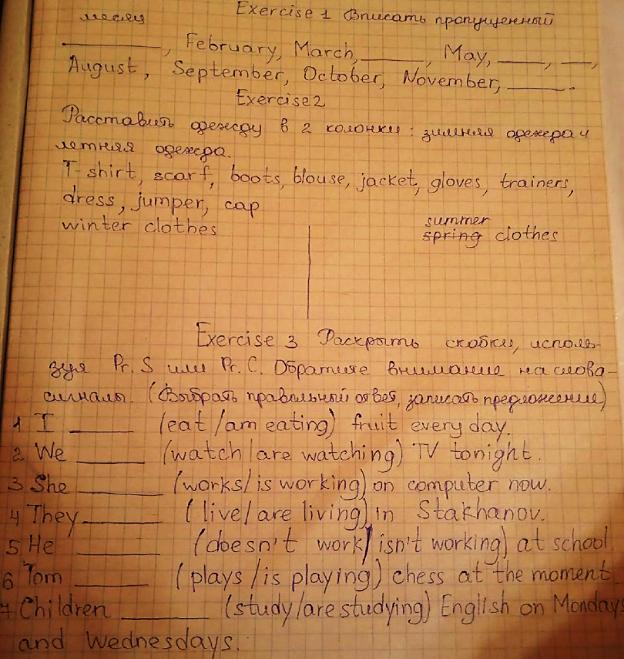 месяц Exercise 1 Вписать пропущенный
________, February, March, _____, May, ____, ___,
August, September, October, November, _____.
Exercise 2
Расставить одежду в 2 колонки: зимняя одежда и
летняя одежда.
T-shirt, scarf, boots, blouse, jacket, gloves, trainers,
dress, jumper, cap
winter clothes summer
spring clothes
Exercise 3 Раскрыть скобки, исполь-
зуя Pr. S или Pr. C. Обратите внимание на слова-
сигналы. (Выбрать правильный ответ, записать предложение)
1 I ______ (eat/am eating) fruit every day.
2 We ______ (watch/are watching) TV tonight.
3 She ______ (works/is working) on computer now.
4 They ______ (live/are living) in Stakhanov.
5 He ______ (doesn't work/isn't working) at school
6 Tom ______ (plays/is playing) chess at the moment
7 Children ______ (study/are studying) English on Mondays
and Wednesdays.